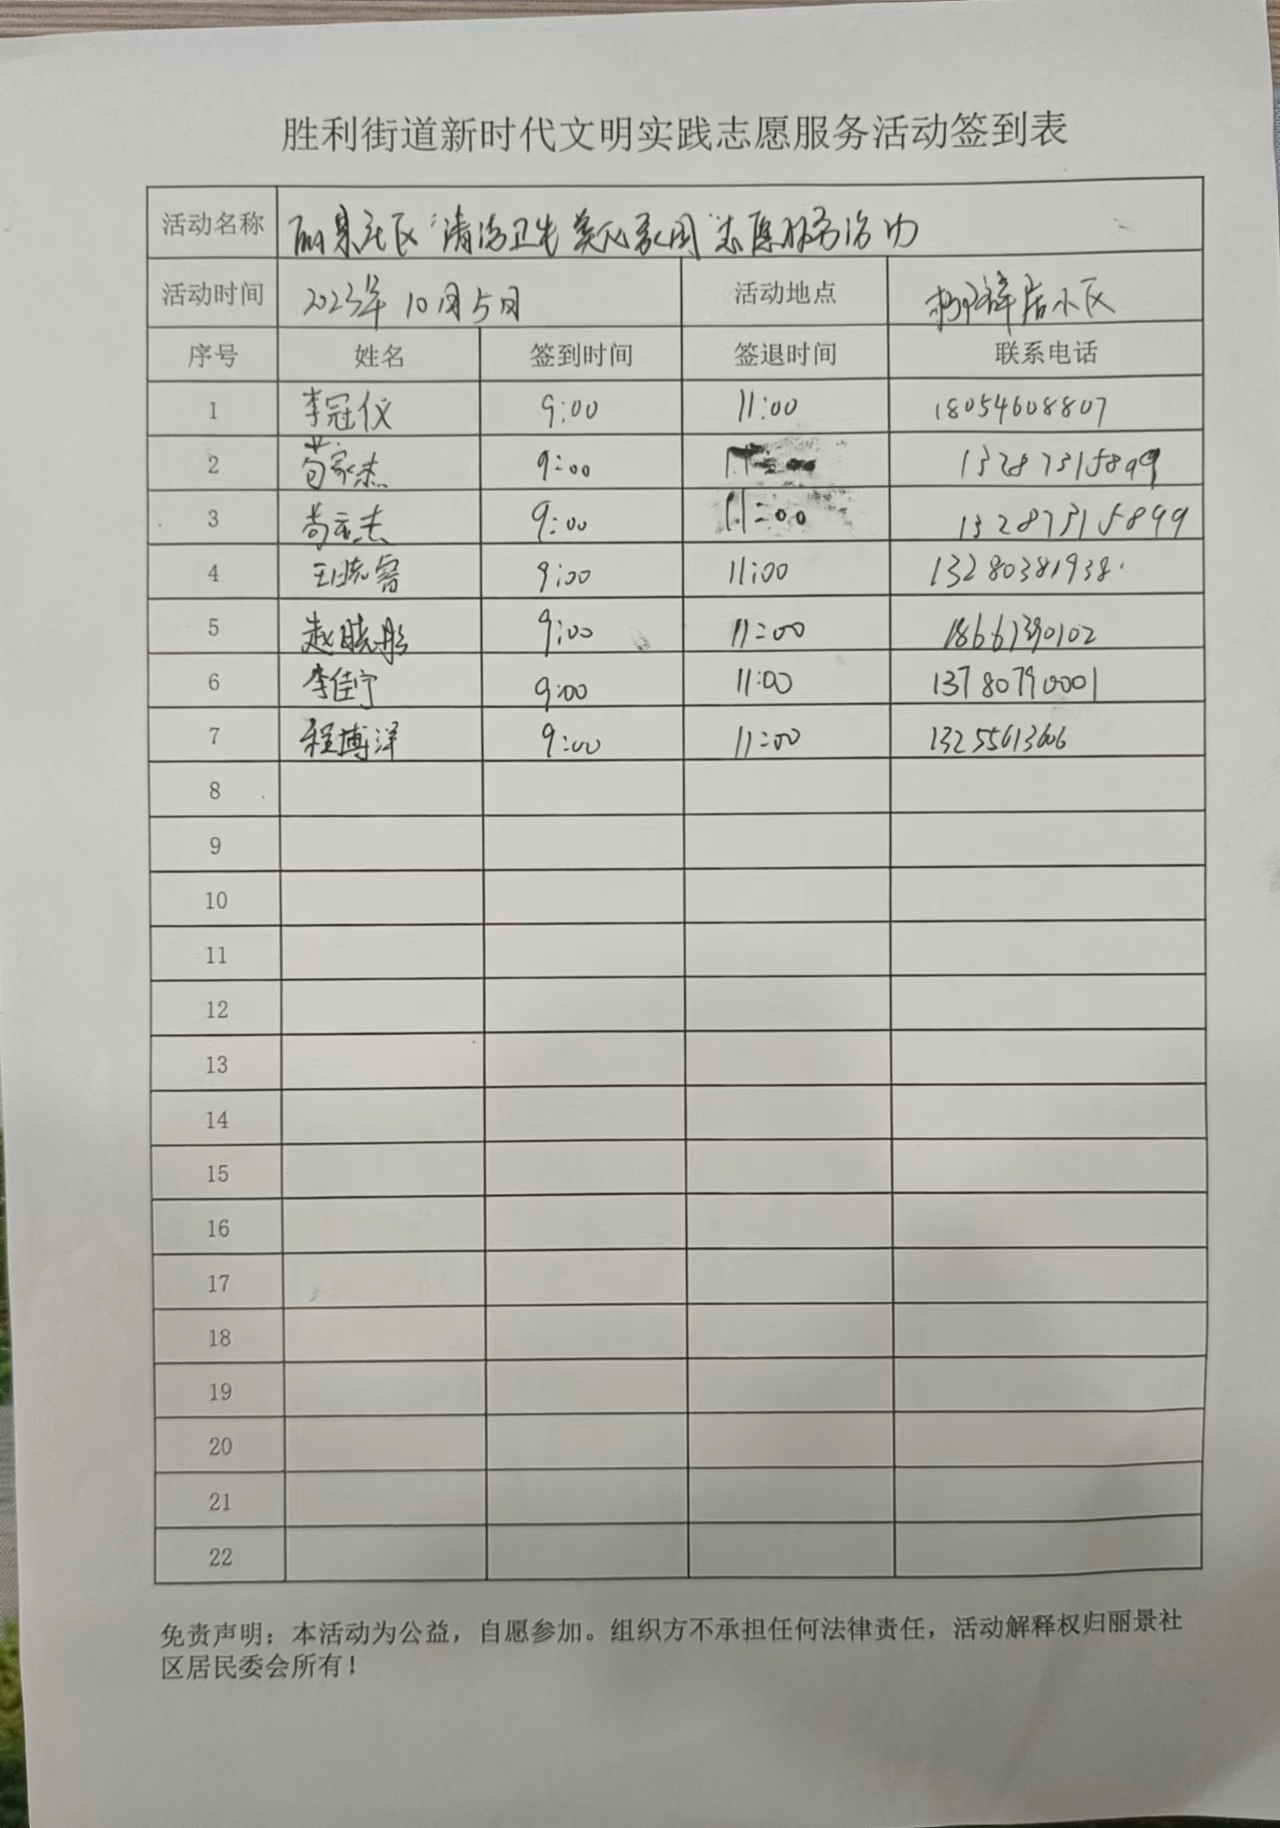 胜利街道新时代文明实践志愿服务活动签到表
活动名称 丽景社区“清洁卫生 美化家园”志愿服务活动
活动时间 2023年10月5日 活动地点 小区
序号 姓名 签到时间 签退时间 联系电话
1 李冠仪 9:00 11:00 18054608807
2 苟家杰 9:00 11:00 13287315899
3 苟家杰 9:00 11:00 13287315899
4 9:00 11:00 13280381938
5 赵晓彤 9:00 11:00 18661390102
6 李佳宁 9:00 11:00 13780790001
7 程博洋 9:00 11:00 13255613606
8
9
10
11
12
13
14
15
16
17
18
19
20
21
22
免责声明：本活动为公益，自愿参加。组织方不承担任何法律责任，活动解释权归丽景社
区居民委会所有！